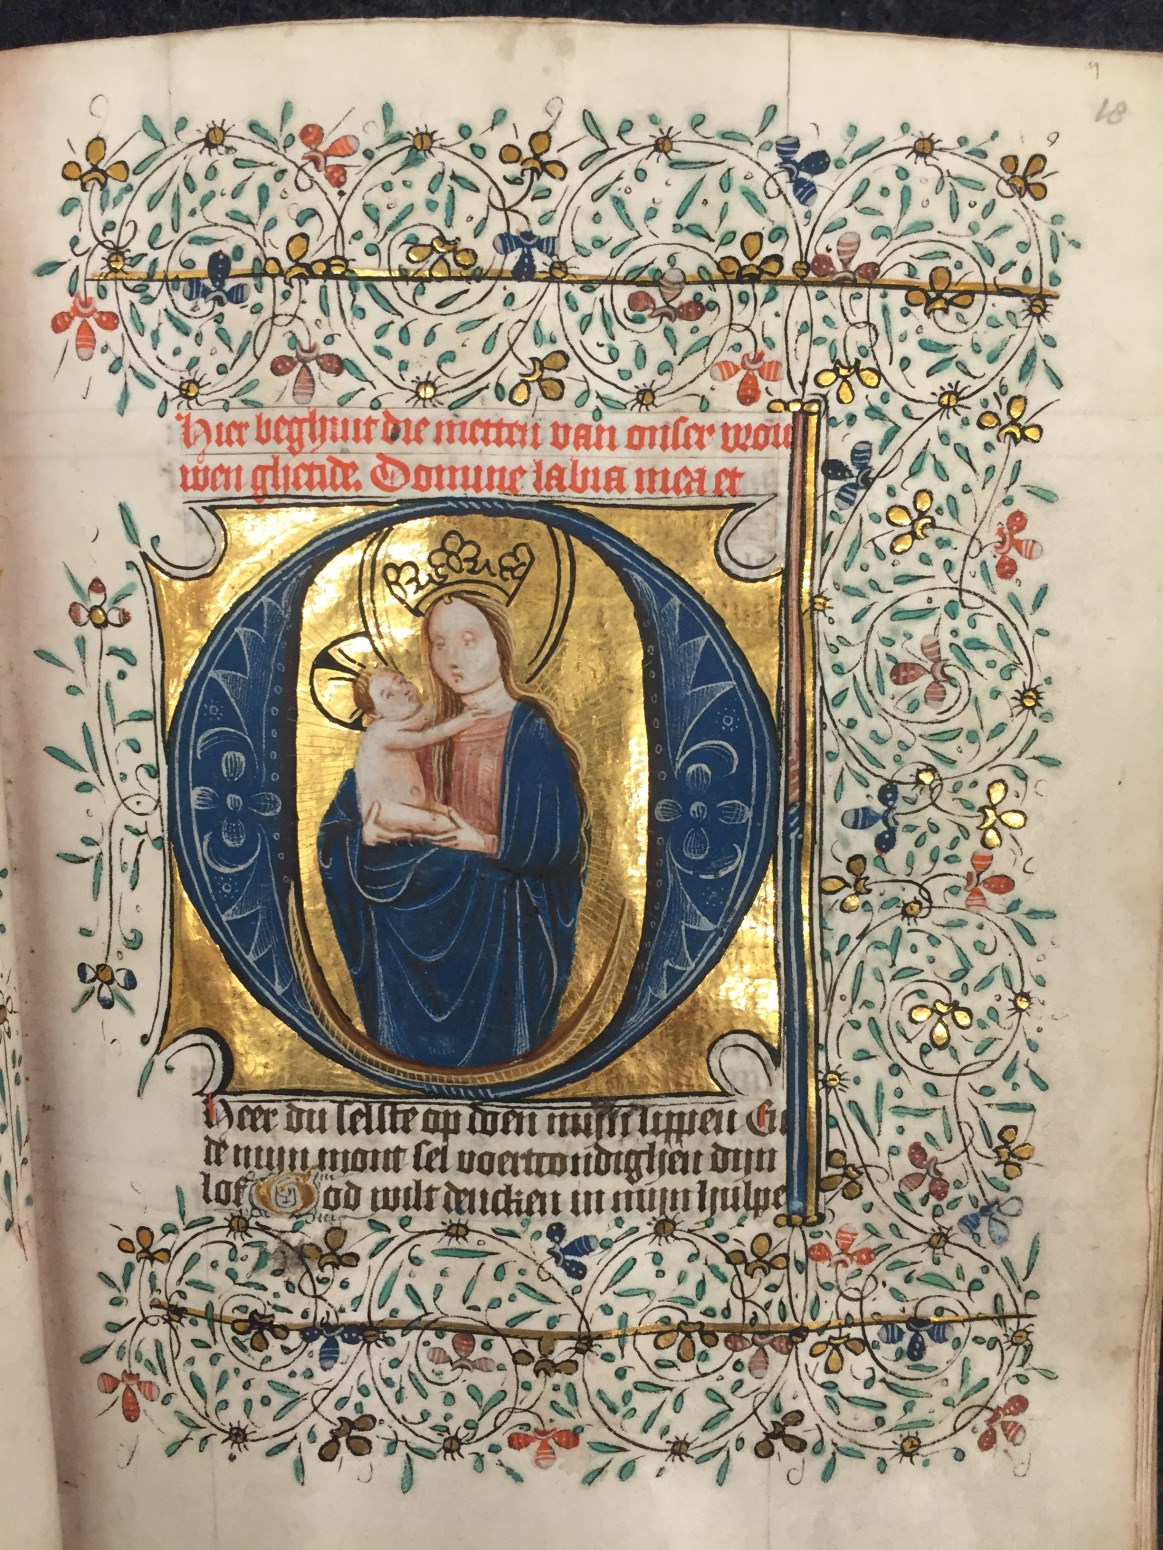 18
Hier beghint die metten van onser vrou
wen ghetide. Domine labia mea et
O
Heer du selste op doen mijn lippen En
de mijn mont sel voertcondighen dijn
lof God wilt dencken in mijn hulpe